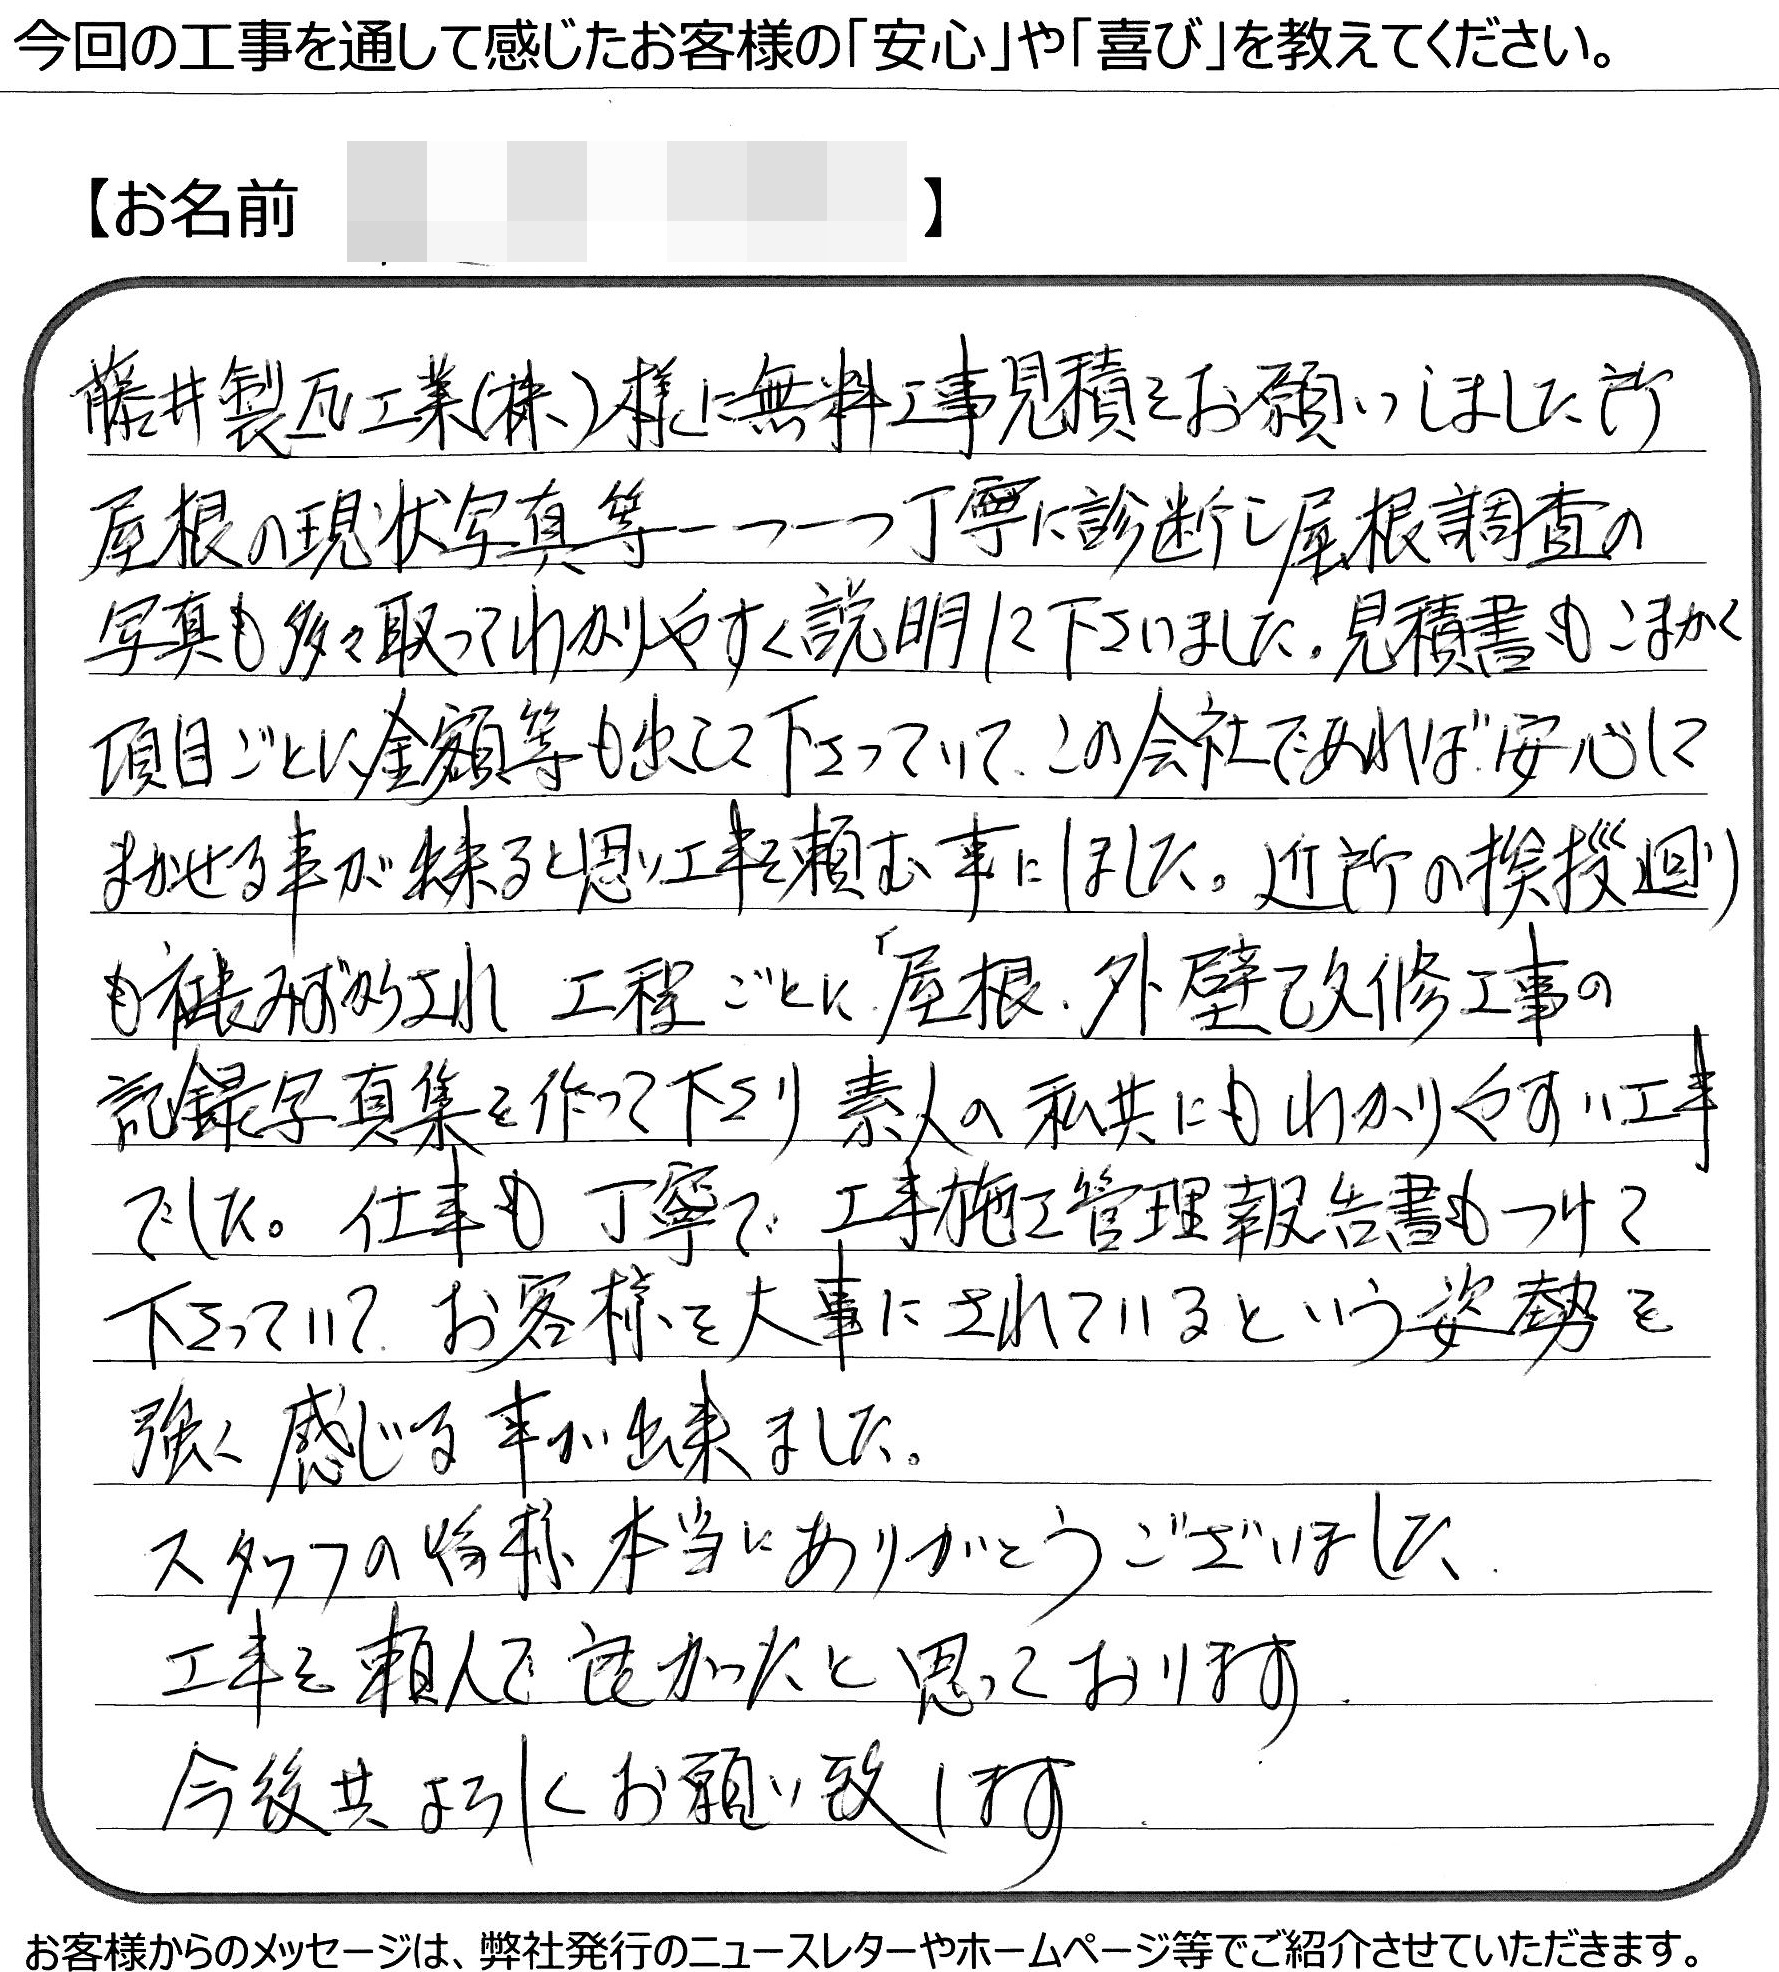 今回の工事を通して感じたお客様の「安心」や「喜び」を教えてください。
【お名前 】
藤井製瓦工業(株)様に無料工事見積をお願いしました所
屋根の現状写真等一つ一つ丁寧に診断し屋根調査の
写真も多々取ってわかりやすく説明して下さいました。見積書もこまかく
項目ごとに金額等も出して下さっていて、この会社であれば安心して
まかせる事が出来ると思い工事を頼む事にしました。近所の挨拶廻り
もされ 工程ごとに「屋根、外壁改修工事の
記録写真集を作って下さり 素人の私共にもわかりやすい工事
でした。仕事も丁寧で、工事施工管理報告書もつけて
下さっていて、お客様を大事にされているという姿勢を
強く感じる事が出来ました。
スタッフの皆様、本当にありがとうございました、
工事を頼んで良かったと思っております。
今後共よろしくお願い致します
お客様からのメッセージは、弊社発行のニュースレターやホームページ等でご紹介させていただきます。